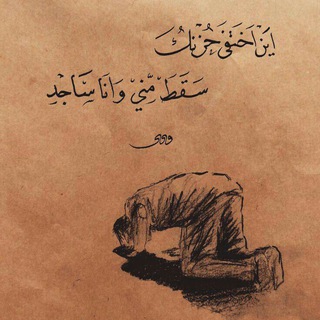 اَيْنَ اَخْتَفَىٰ حُزْنُكَ
سَقَطَ مِّنيْ وَانَا سَاجْدِ